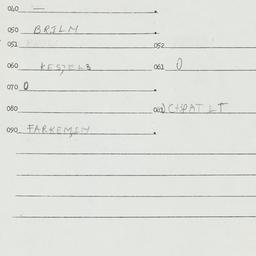 040 —
050 BRILM
051 052
060 KESZELB 061 0
070 0
080 081
090 FARKEMIN